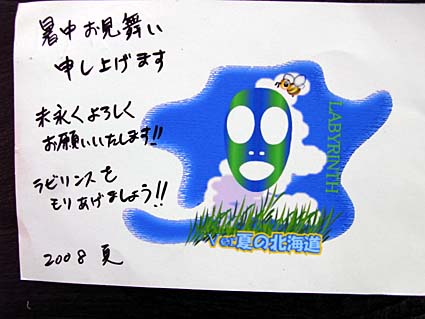 暑中お見舞い
申し上げます
末永くよろしく
お願いいたします!!
ラビリンスを
もりあげましょう!!
2008 夏
LABYRINTH
夏の北海道